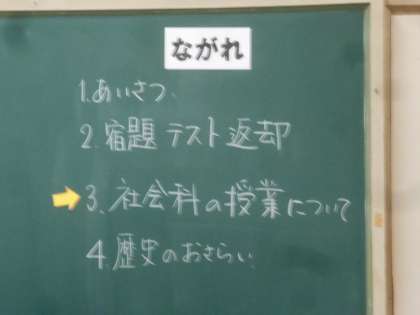 ながれ
1.あいさつ
2.宿題テスト返却
3.社会科の授業について
4.歴史のおさらい